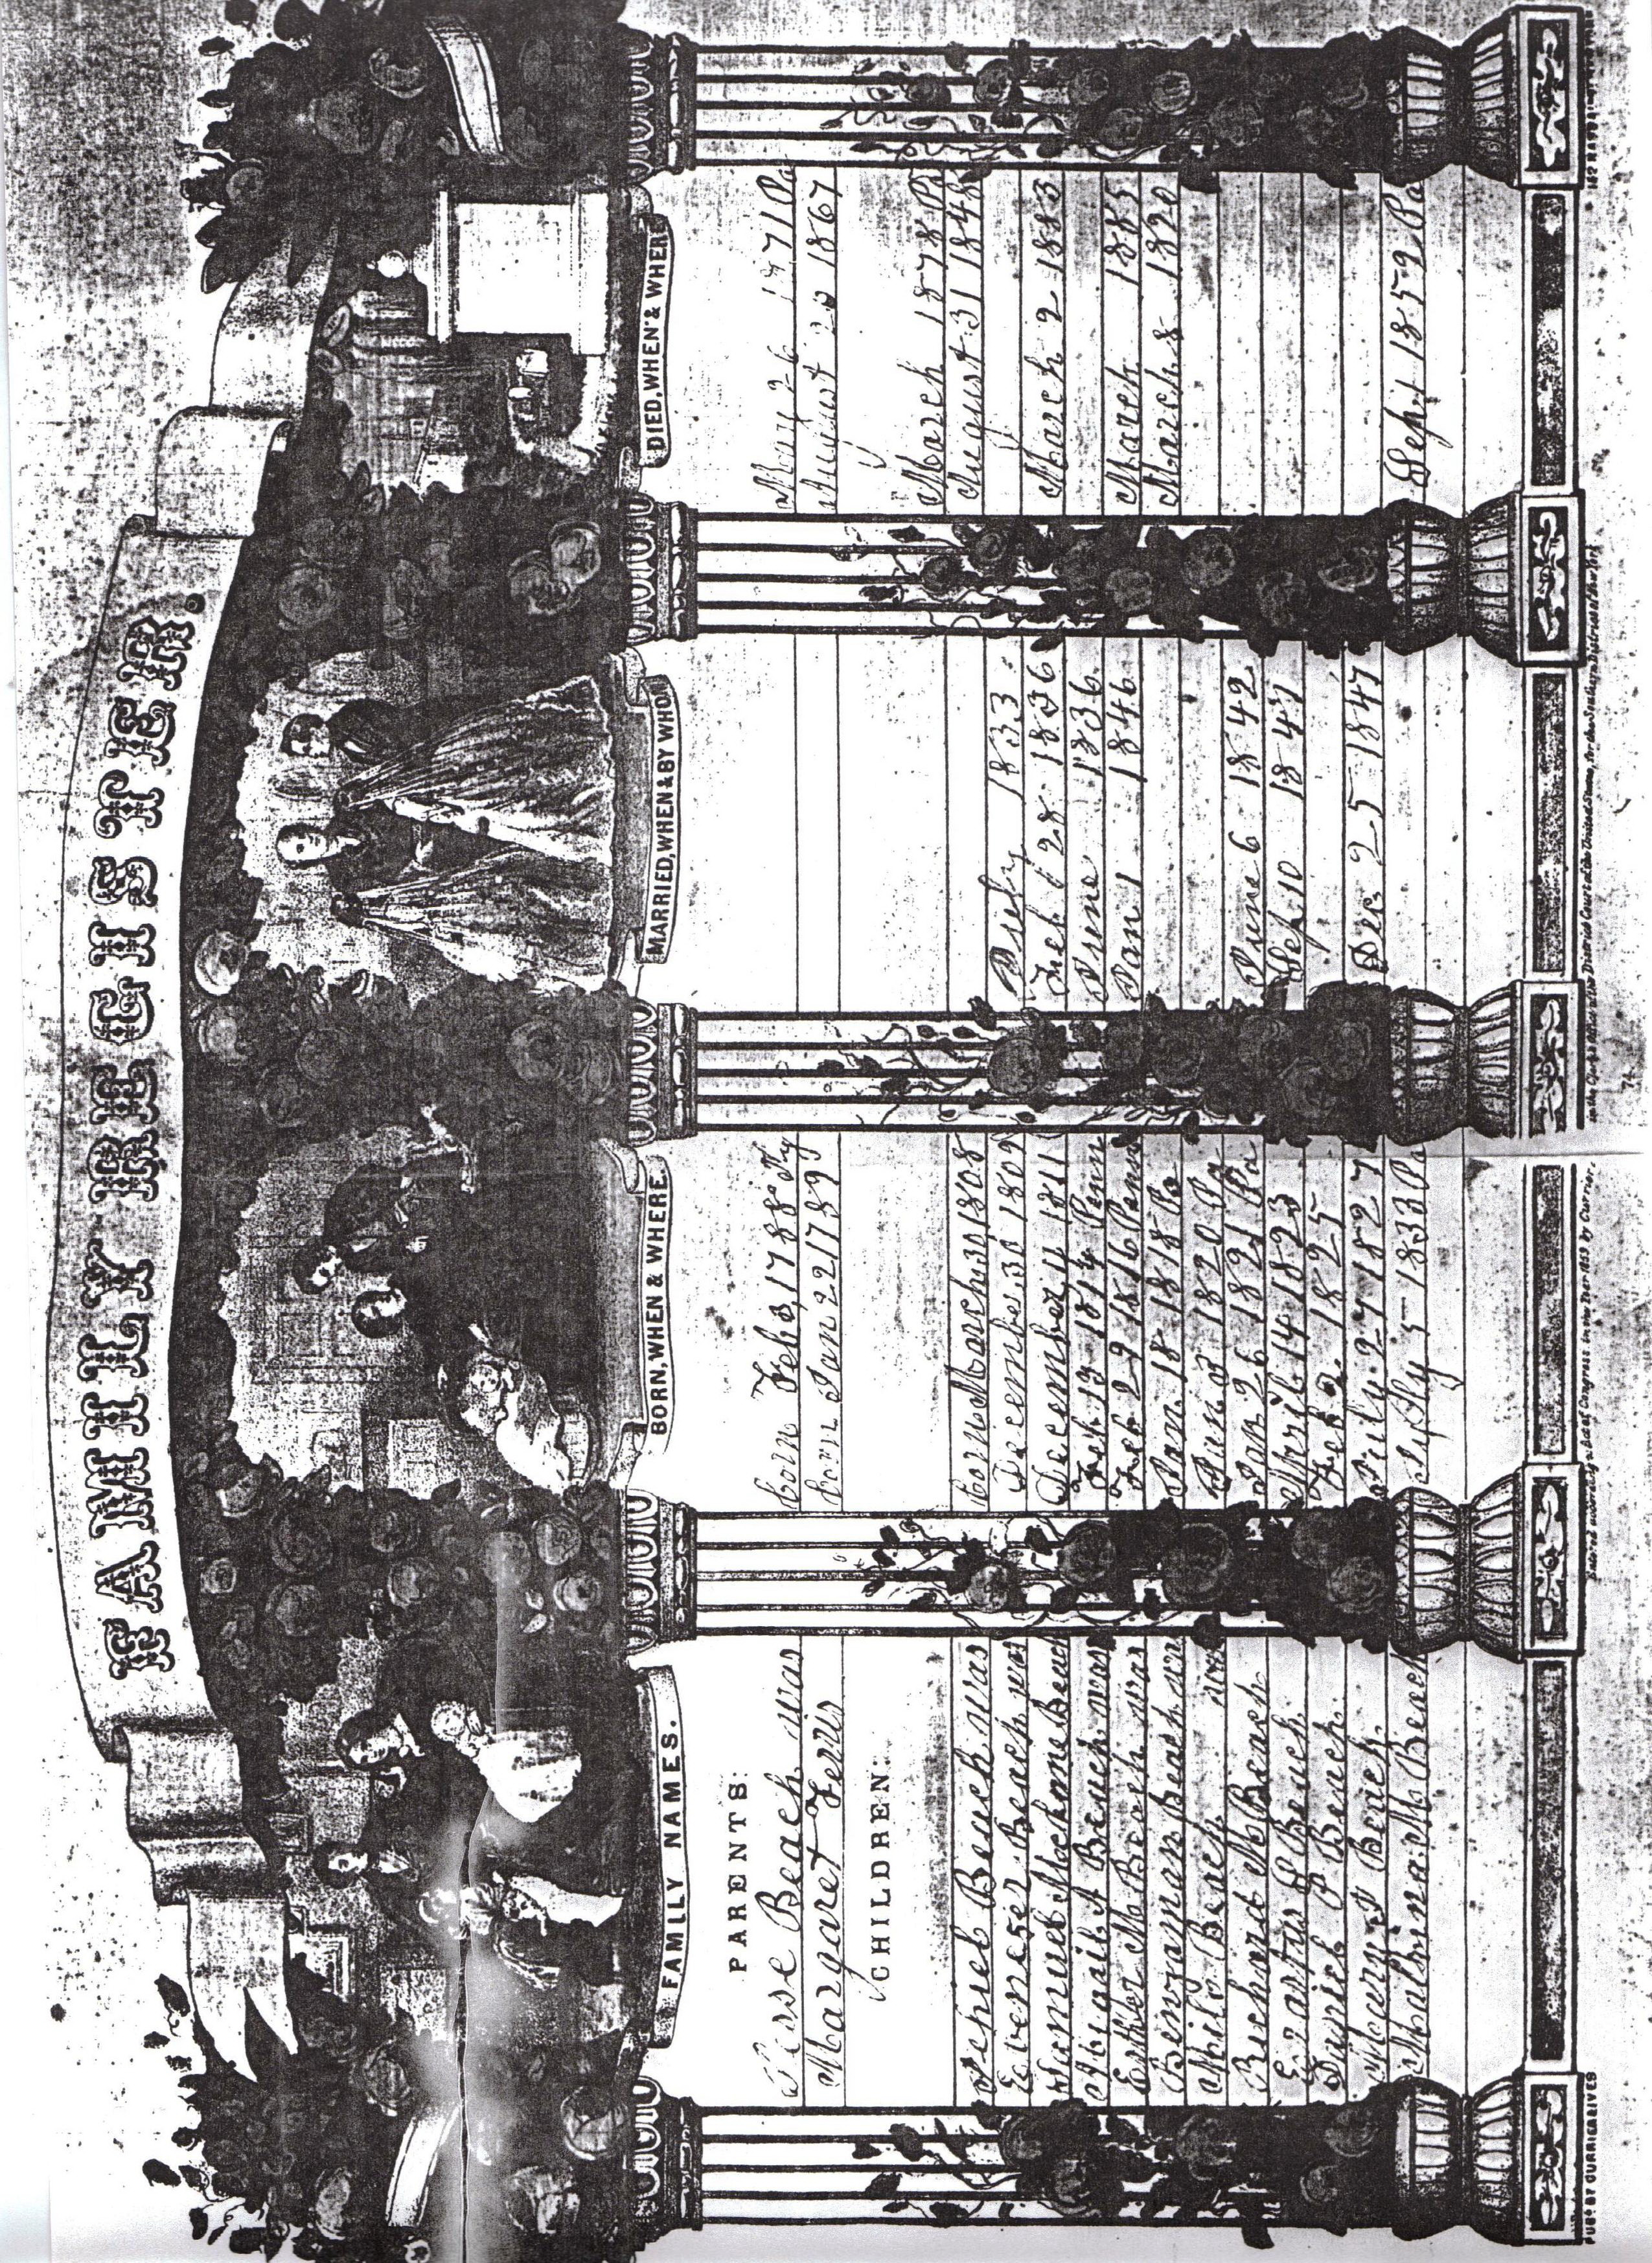 FAMILY REGISTER.
FAMILY NAMES.
BORN, WHEN & WHERE.
MARRIED, WHEN & BY WHOM
DIED, WHEN & WHERE
PARENTS:
Jesse Beach was born Feb 8, 1788 May 26 1871 Pa
Margaret Ferris born Jan 22 1789 August 20 1867
CHILDREN:
Beach was born March 30 1808 March 1878 Pa
Ebenezer Beach was December 30 1809 July 1833 August 31 1848
Beach December 11 1811 Feb 28 1836
Abigail A Beach was Feb 13 1814 Penn June 1836 March 2 1883
Esther M Beach was Feb 29 1816 Penn Jan 1 1846
Benjaman Beach was Jan 18 1818 Pa March 1885
Milo Beach was Jan 3 1820 Pa March 8 1820
Richard M Beach Jan 26 1821 Pa June 6 1842
Erastus S Beach April 14 1823 Sep 10 1847
Daniel P Beach Feb 2 1825
Beach July 27 1827 Dec 25 1847
Malbina M Beach July 5 1833 Pa Sept 1859 Pa
PUBD BY CURRIER & IVES
Entered according to Act of Congress in the Year 1863 by Currier
in the Clerk's Office of the District Court of the United States, for the Southern District of New York
74
152 NASSAU ST. NEW YORK